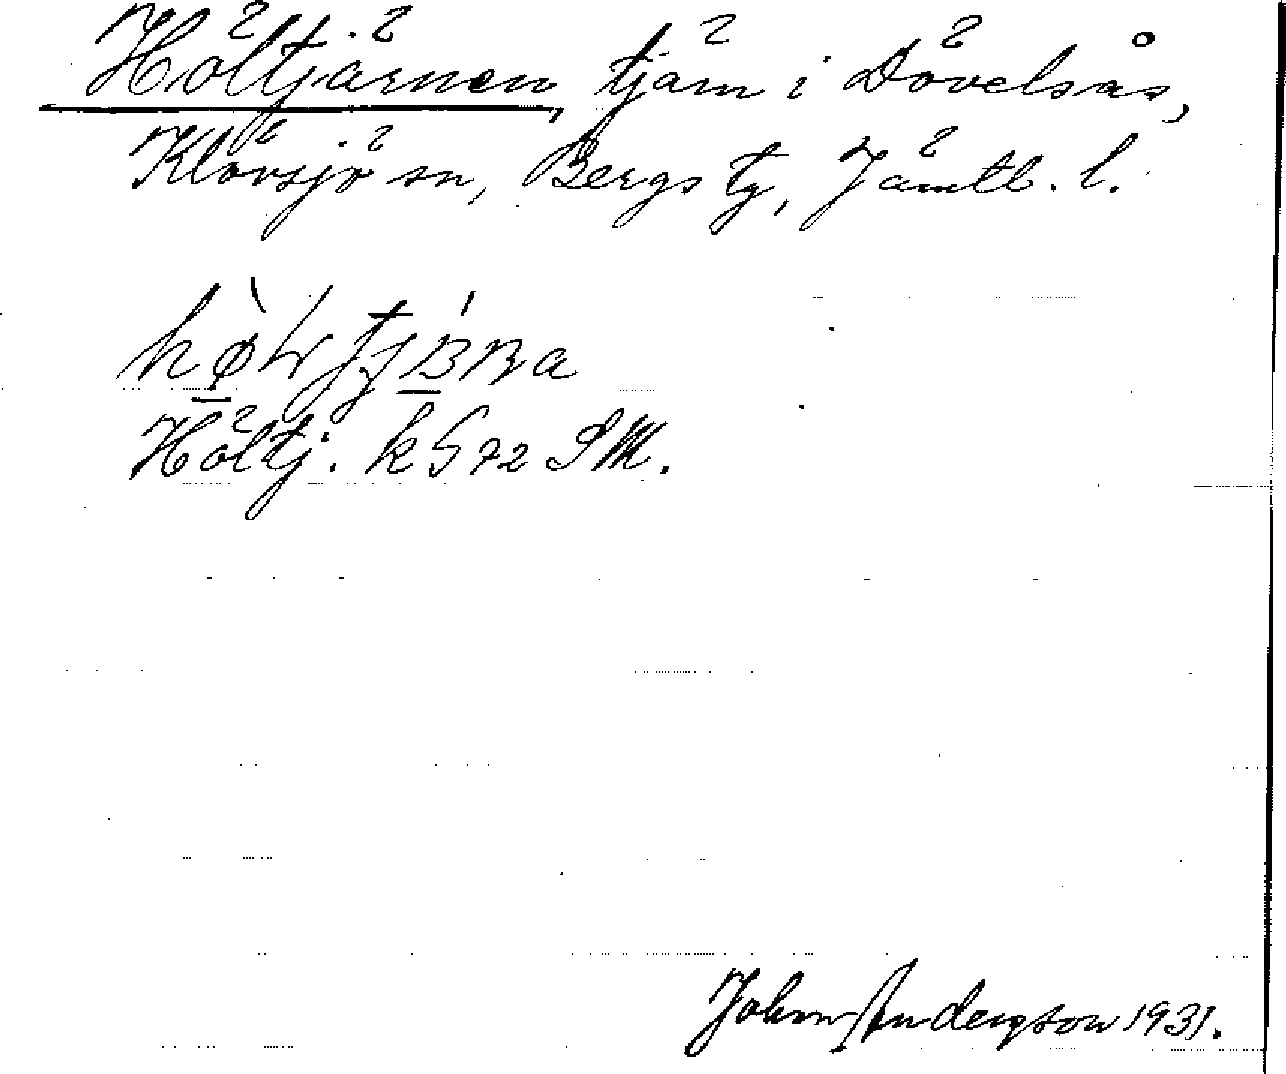 Höltjärnen, tjärn i Dövelsås,
Klövsjö sn, Bergs tg, Jämtl. l.
Höltj. k G 72 SM.
John Andersson 1931.